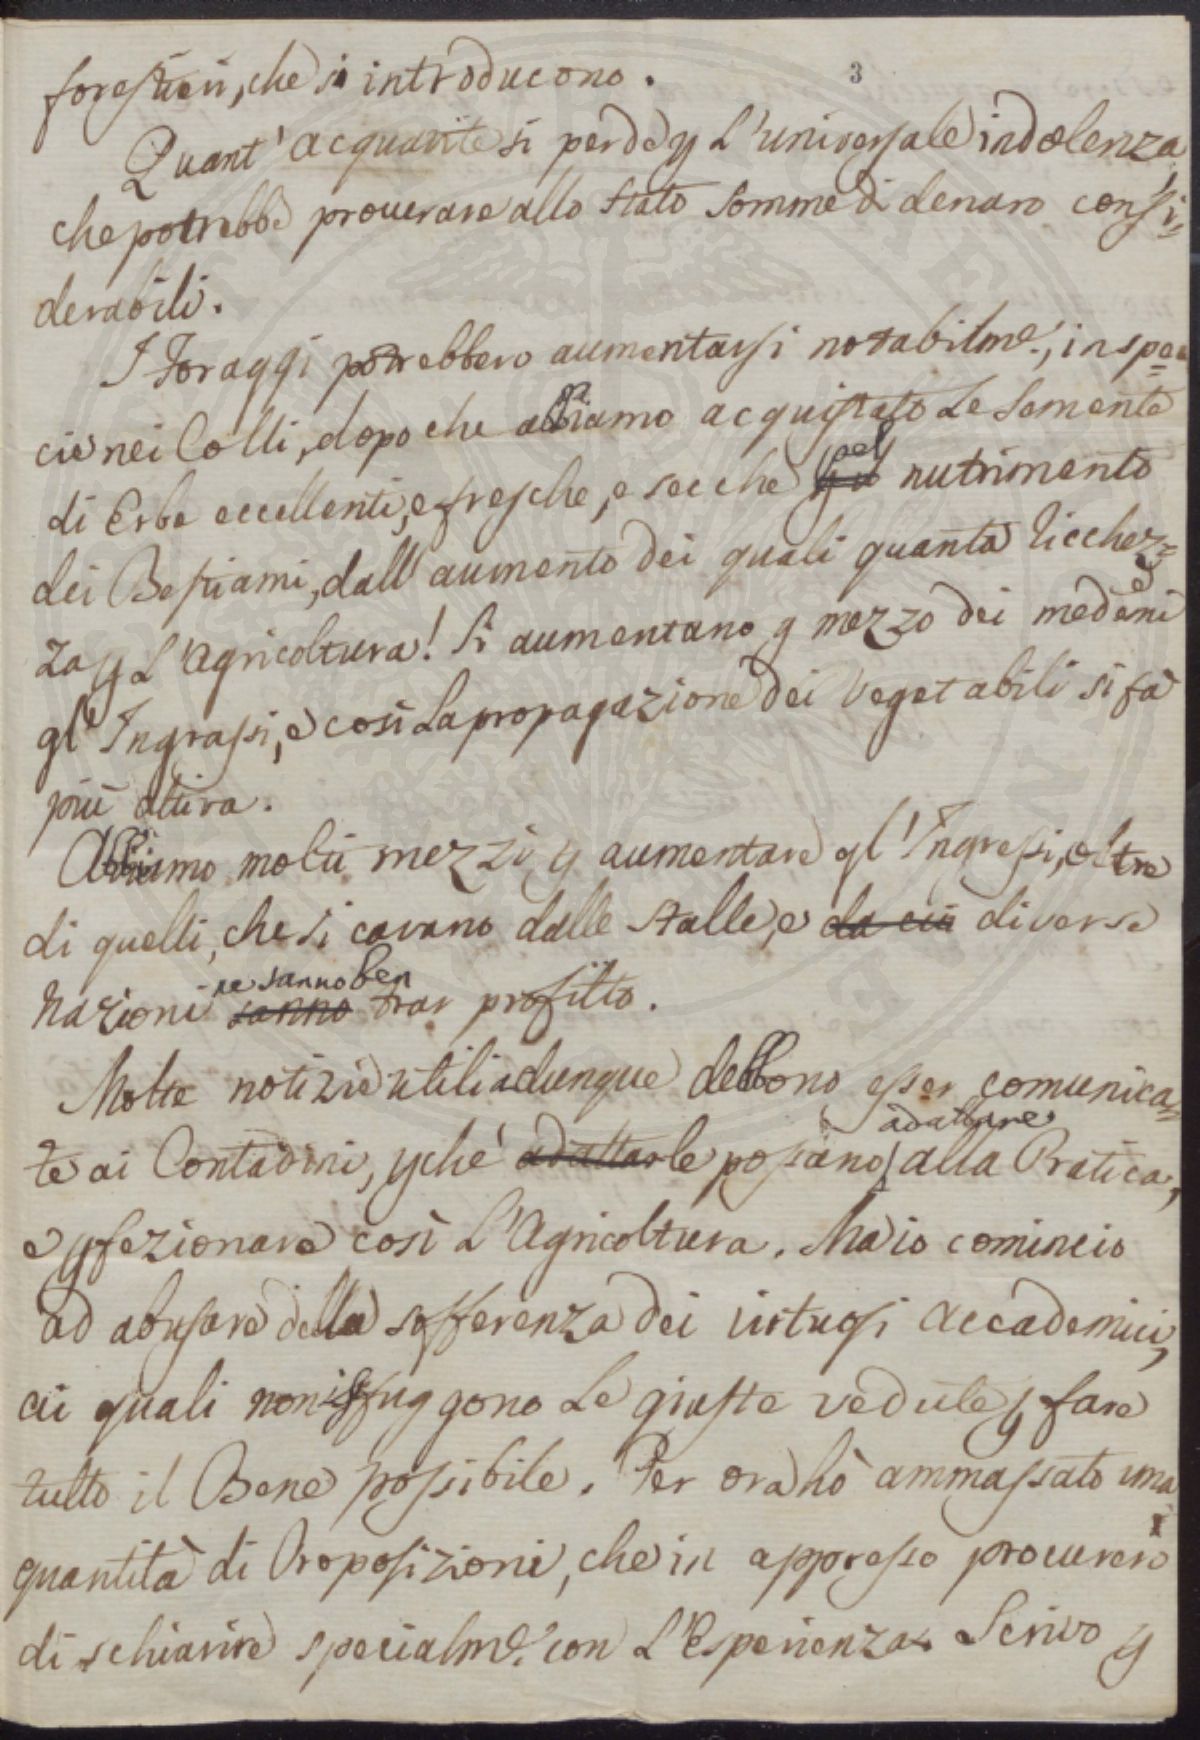 3
forestieri, che si introducono.
Quant' acquavite si perde p L'universale indolenza,
che potrebbe procurare allo Stato somme di denaro consi=
derabili.
I Foraggi potrebbero aumentarsi notabilme., in spe=
cie nei Colli, dopo che abbiamo acquistato Le Semente
di Erbe eccellenti, e fresche, e secche pel nutrimento
dei Bestiami, dall' aumento dei quali quanta Ricchez=
za p L'Agricoltura! Si aumentano p mezzo dei medemi
gl' Ingrassi, e così La propagazione dei Vegetabili si fà
più attiva.
Abbiamo molti mezzi p aumentare gl' Ingrassi, oltre
di quelli, che si cavano dalle Stalle, e da cui diverse
Nazioni ne sanno ben sanno trar profitto.
Molte notizie utili adunque debbono esser comunica=
te ai Contadini, pchè adattarle possano adattare alla Pratica,
e pfezionare così L'Agricoltura. Ma io comincio
ad abusare della sofferenza dei virtuosi Accademici,
ai quali non isfuggono Le giuste vedute p fare
tutto il Bene possibile. Per ora hò ammassato una
quantità di Proposizioni, che in appresso procurerò
di schiarire specialme. con L'Esperienza. Scrivo p